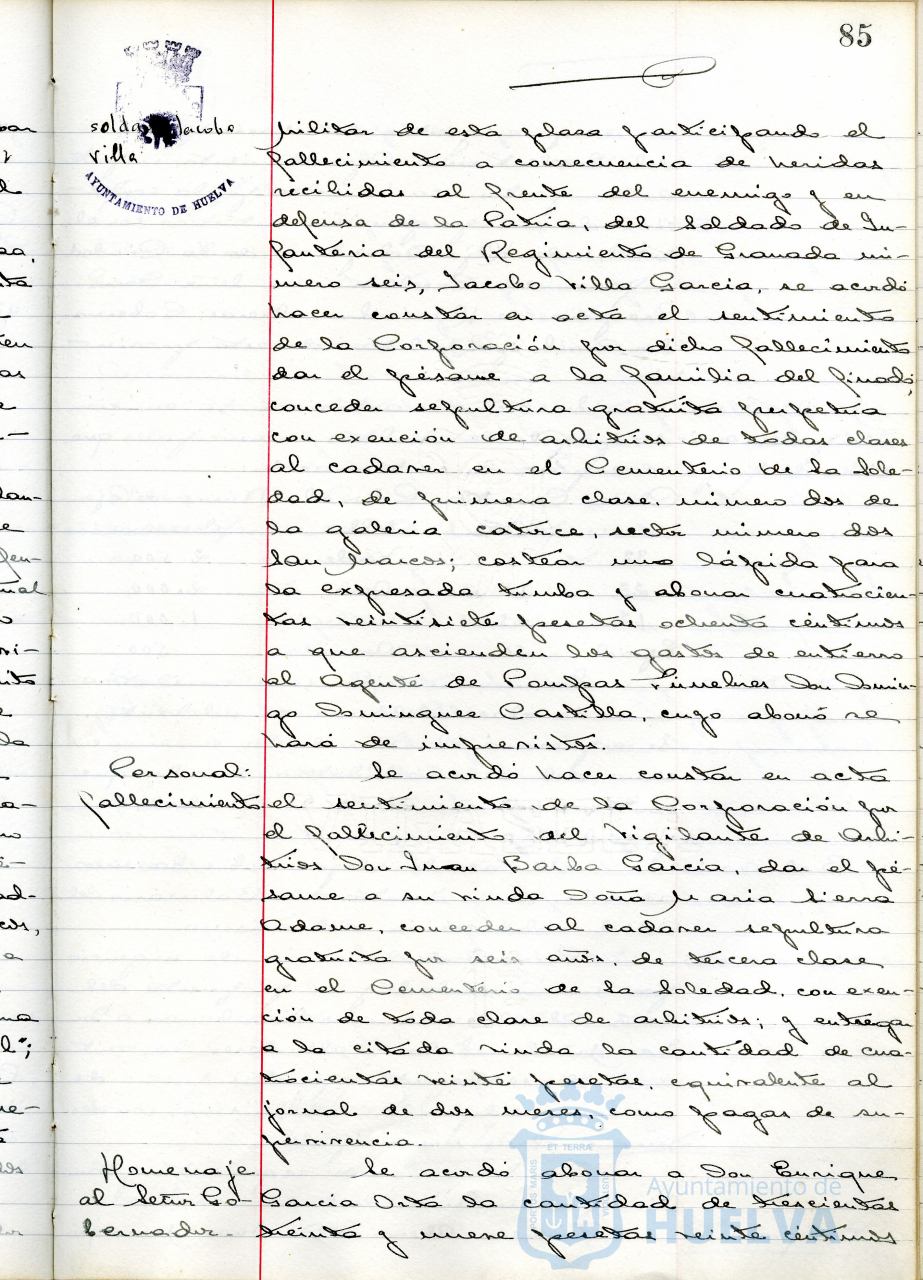 85
soldado Jacobo
Villa
AYUNTAMIENTO DE HUELVA
Militar de esta plaza participando el
fallecimiento a consecuencia de heridas
recibidas al frente del enemigo y en
defensa de la Patria, del Soldado de In-
fantería del Regimiento de Granada nú-
mero seis, Jacobo Villa Garcia, se acordó
hacer constar en acta el sentimiento
de la Corporación por dicho fallecimiento
dar el pésame a la familia del finado,
conceder sepultura gratuita perpetua
con exención de arbitrios de todas clases
al cadaver en el Cementerio de la Sole-
dad, de primera clase, número dos de
la galería catorce, sector número dos
San Marcos; costear una lápida para
la expresada tumba y abonar cuatrocien-
tas veintisiete pesetas ochenta céntimos
a que ascienden los gastos de entierro
al Agente de Pompas Fúnebres Don Domin-
go Dominguez Castilla, cuyo abono se
hará de imprevistos.
Personal:
fallecimiento
Se acordó hacer constar en acta
el sentimiento de la Corporación por
el fallecimiento del Vigilante de Arbi-
trios Don Juan Barba García, dar el pé-
same a su viuda Doña Maria Sierra
Adame, conceder al cadaver sepultura
gratuita por seis años, de tercera clase
en el Cementerio de la Soledad, con exen-
ción de toda clase de arbitrios; y entregar
a la citada viuda la cantidad de cua-
trocientas veinte pesetas, equivalente al
jornal de dos meses, como pagas de su-
pervivencia.
Homenaje
al Señor Go-
bernador.-
Se acordó abonar a Don Enrique
Garcia Orta la cantidad de trescientas
treinta y nueve pesetas veinte centimos
ET TERRÆ
PORTUS MARIS
CUSTODIA
Ayuntamiento de
HUELVA